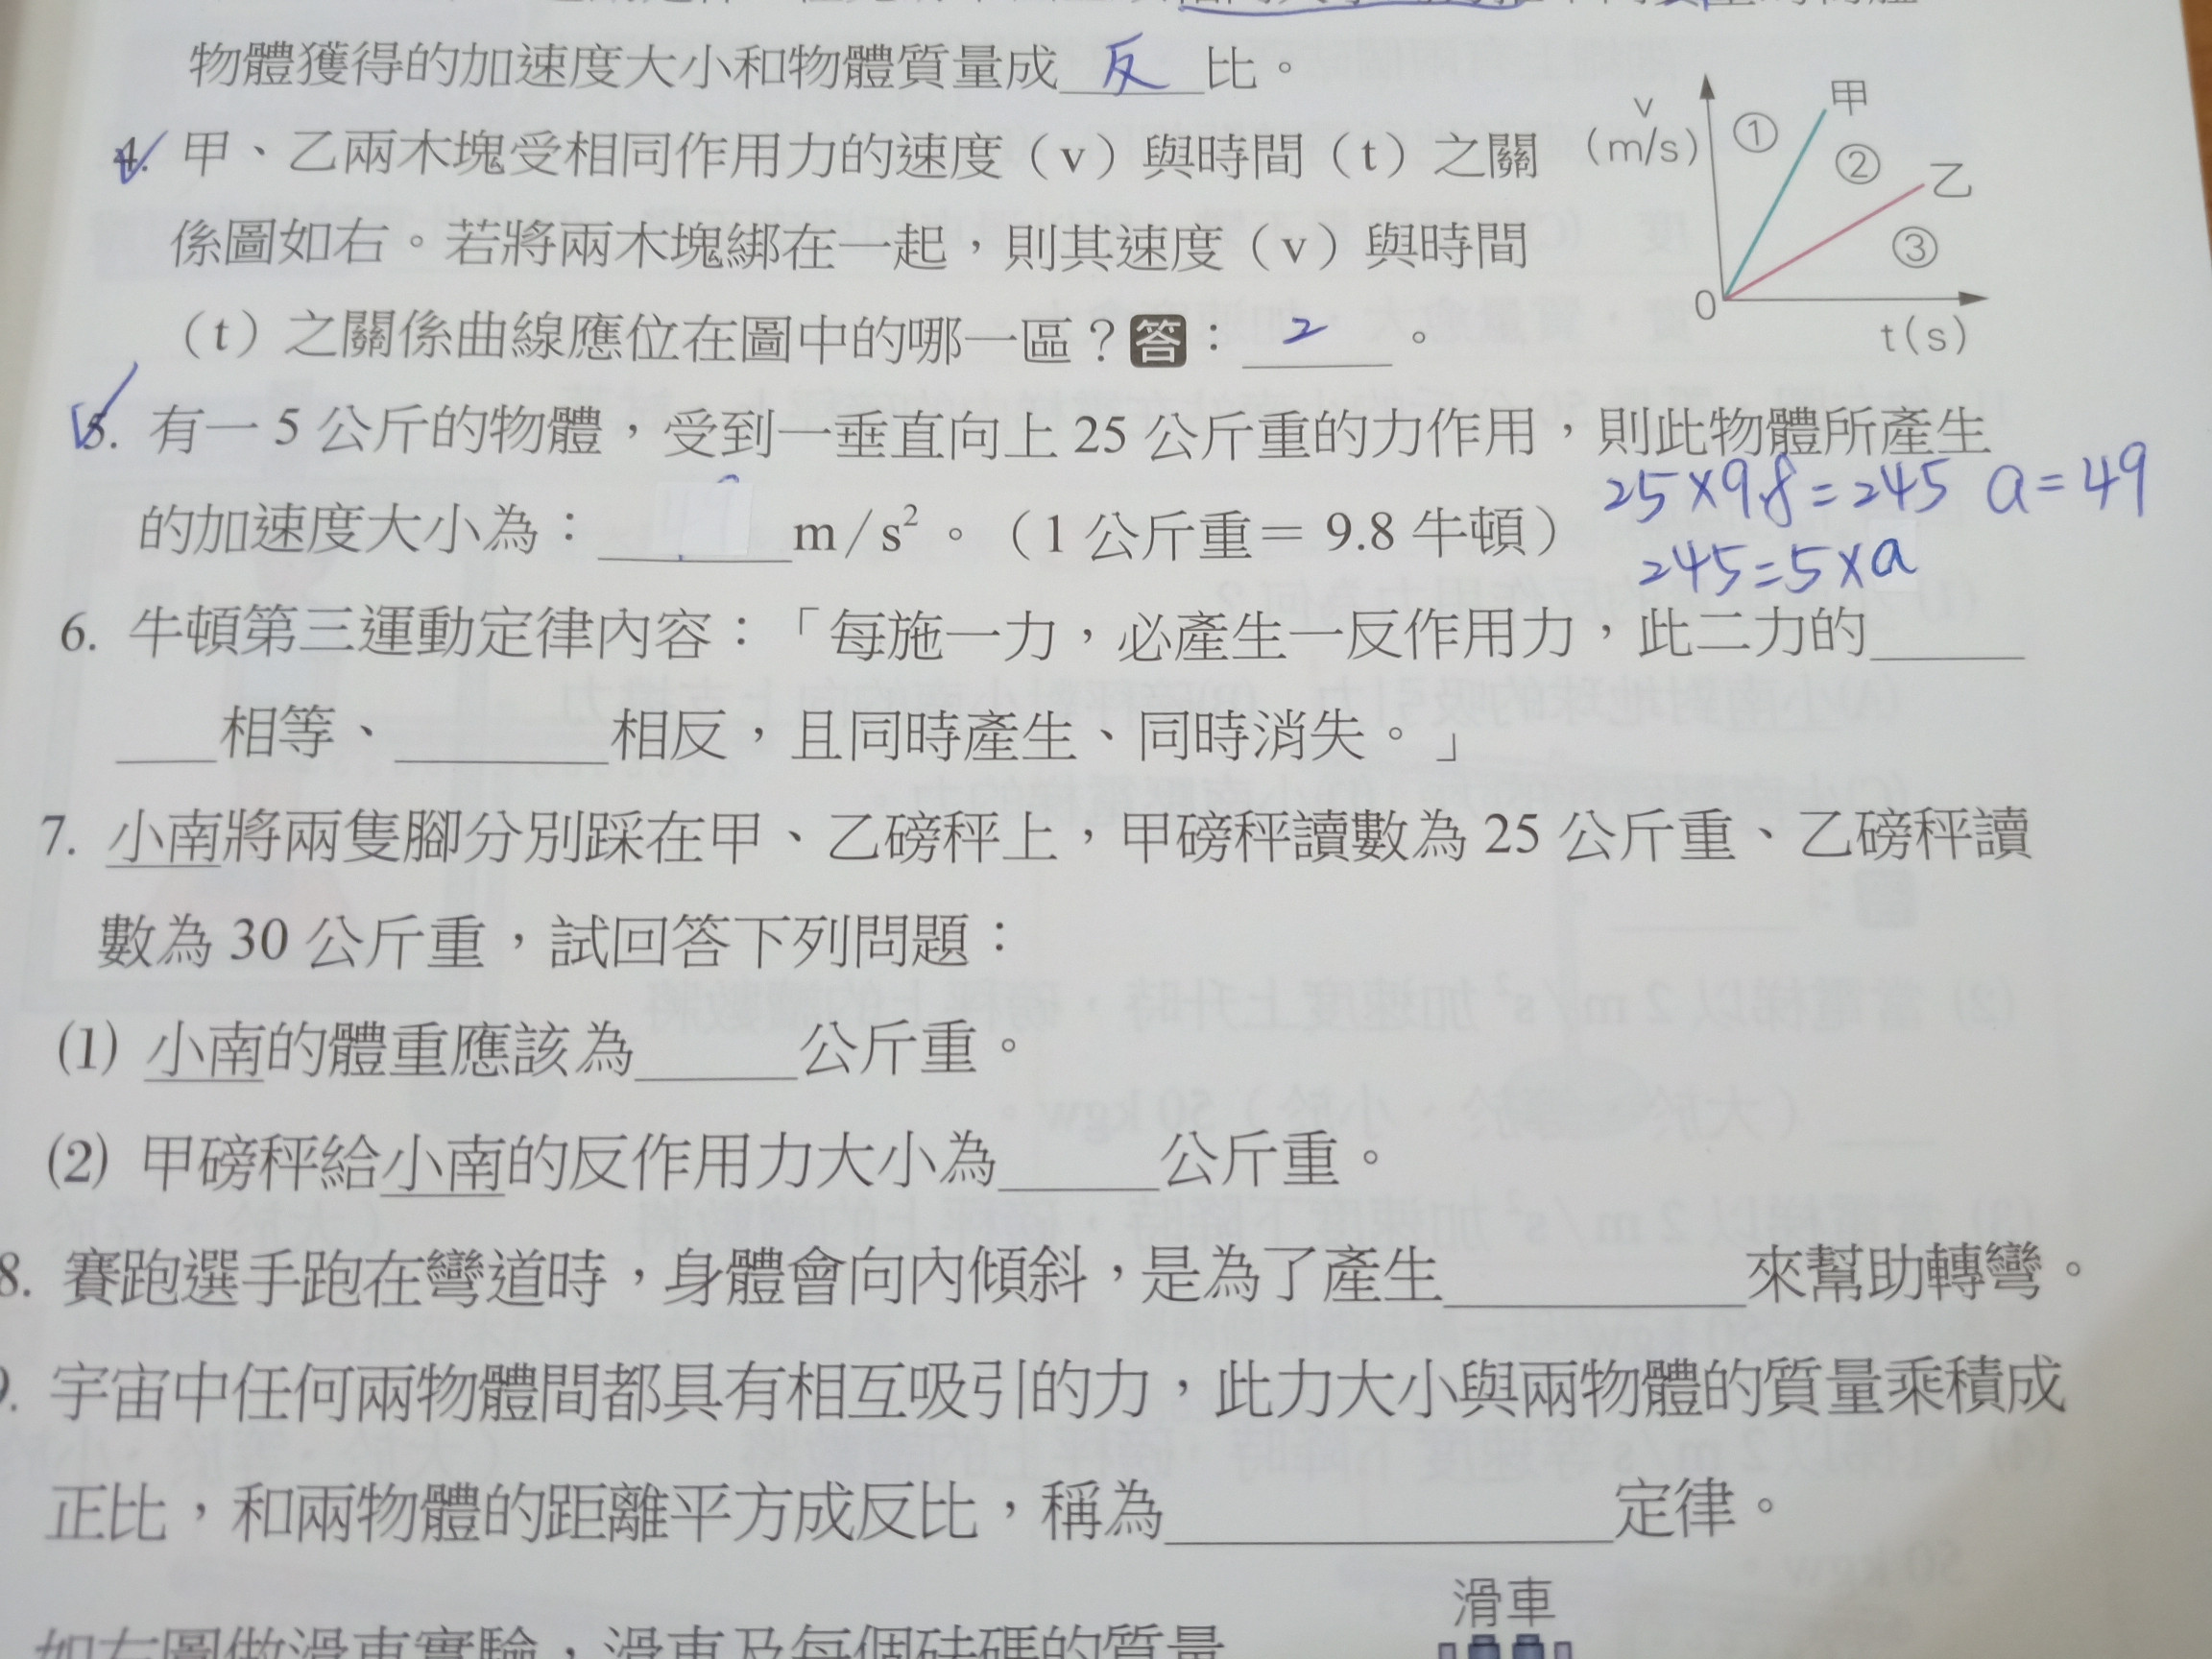 物體獲得的加速度大小和物體質量成 反 比。
4. 甲、乙兩木塊受相同作用力的速度（v）與時間（t）之關
係圖如右。若將兩木塊綁在一起，則其速度（v）與時間
（t）之關係曲線應位在圖中的哪一區？答： 2 。
v
(m/s)
甲
①
②
乙
③
0
t(s)
5. 有一 5 公斤的物體，受到一垂直向上 25 公斤重的力作用，則此物體所產生
的加速度大小為：＿＿＿ m/s²。（1 公斤重＝ 9.8 牛頓）
25×9.8=245 a=49
245=5×a
6. 牛頓第三運動定律內容：「每施一力，必產生一反作用力，此二力的＿＿＿
＿＿相等、＿＿＿＿相反，且同時產生、同時消失。」
7. 小南將兩隻腳分別踩在甲、乙磅秤上，甲磅秤讀數為 25 公斤重、乙磅秤讀
數為 30 公斤重，試回答下列問題：
(1) 小南的體重應該為＿＿＿公斤重。
(2) 甲磅秤給小南的反作用力大小為＿＿＿公斤重。
8. 賽跑選手跑在彎道時，身體會向內傾斜，是為了產生＿＿＿＿＿來幫助轉彎。
9. 宇宙中任何兩物體間都具有相互吸引的力，此力大小與兩物體的質量乘積成
正比，和兩物體的距離平方成反比，稱為＿＿＿＿＿＿＿定律。
滑車
如右圖做滑車實驗，滑車及每個砝碼的質量